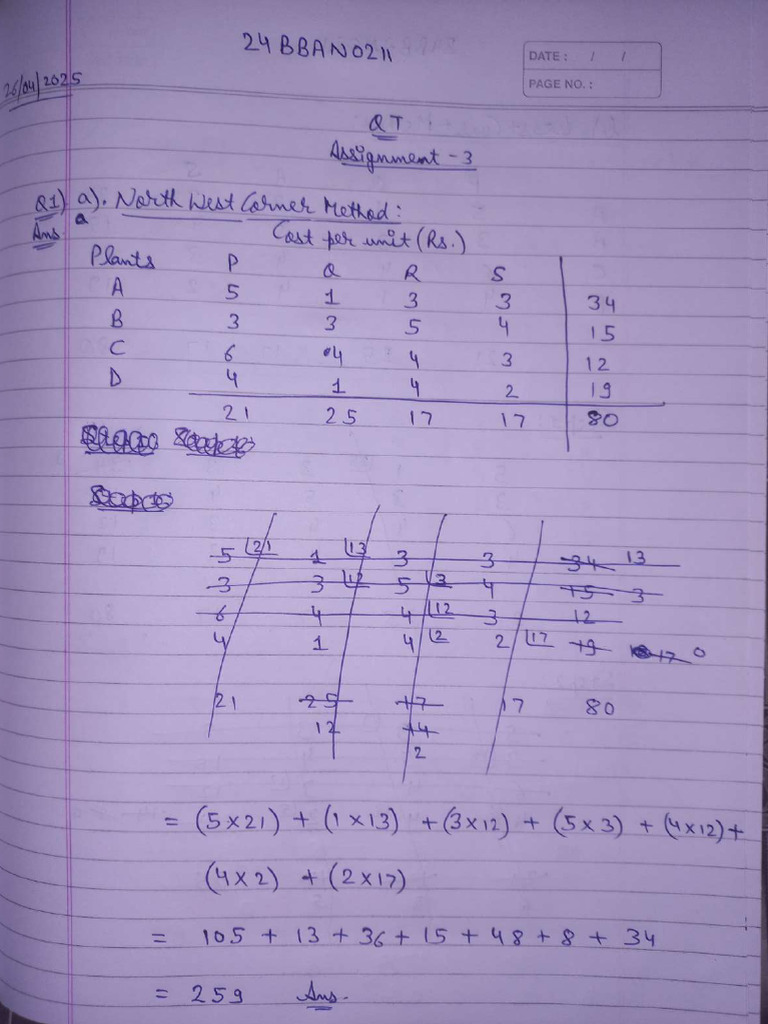 24BBAN0211
DATE : / /
PAGE NO. :
26/04/2025
QT
Assignment - 3
Q1) a). North West Corner Method :
Ans a Cost per unit (Rs.)
Plants P Q R S
A 5 1 3 3 34
B 3 3 5 4 15
C 6 4 4 3 12
D 4 1 4 2 19
21 25 17 17 80
5 21 1 13 3 3 34 13
3 3 12 5 3 4 15 3
6 4 4 12 3 12
4 1 4 2 2 17 19 17 0
21 25 17 17 80
12 14
2
= (5 x 21) + (1 x 13) + (3 x 12) + (5 x 3) + (4 x 12) +
(4 x 2) + (2 x 17)
= 105 + 13 + 36 + 15 + 48 + 8 + 34
= 259 Ans.